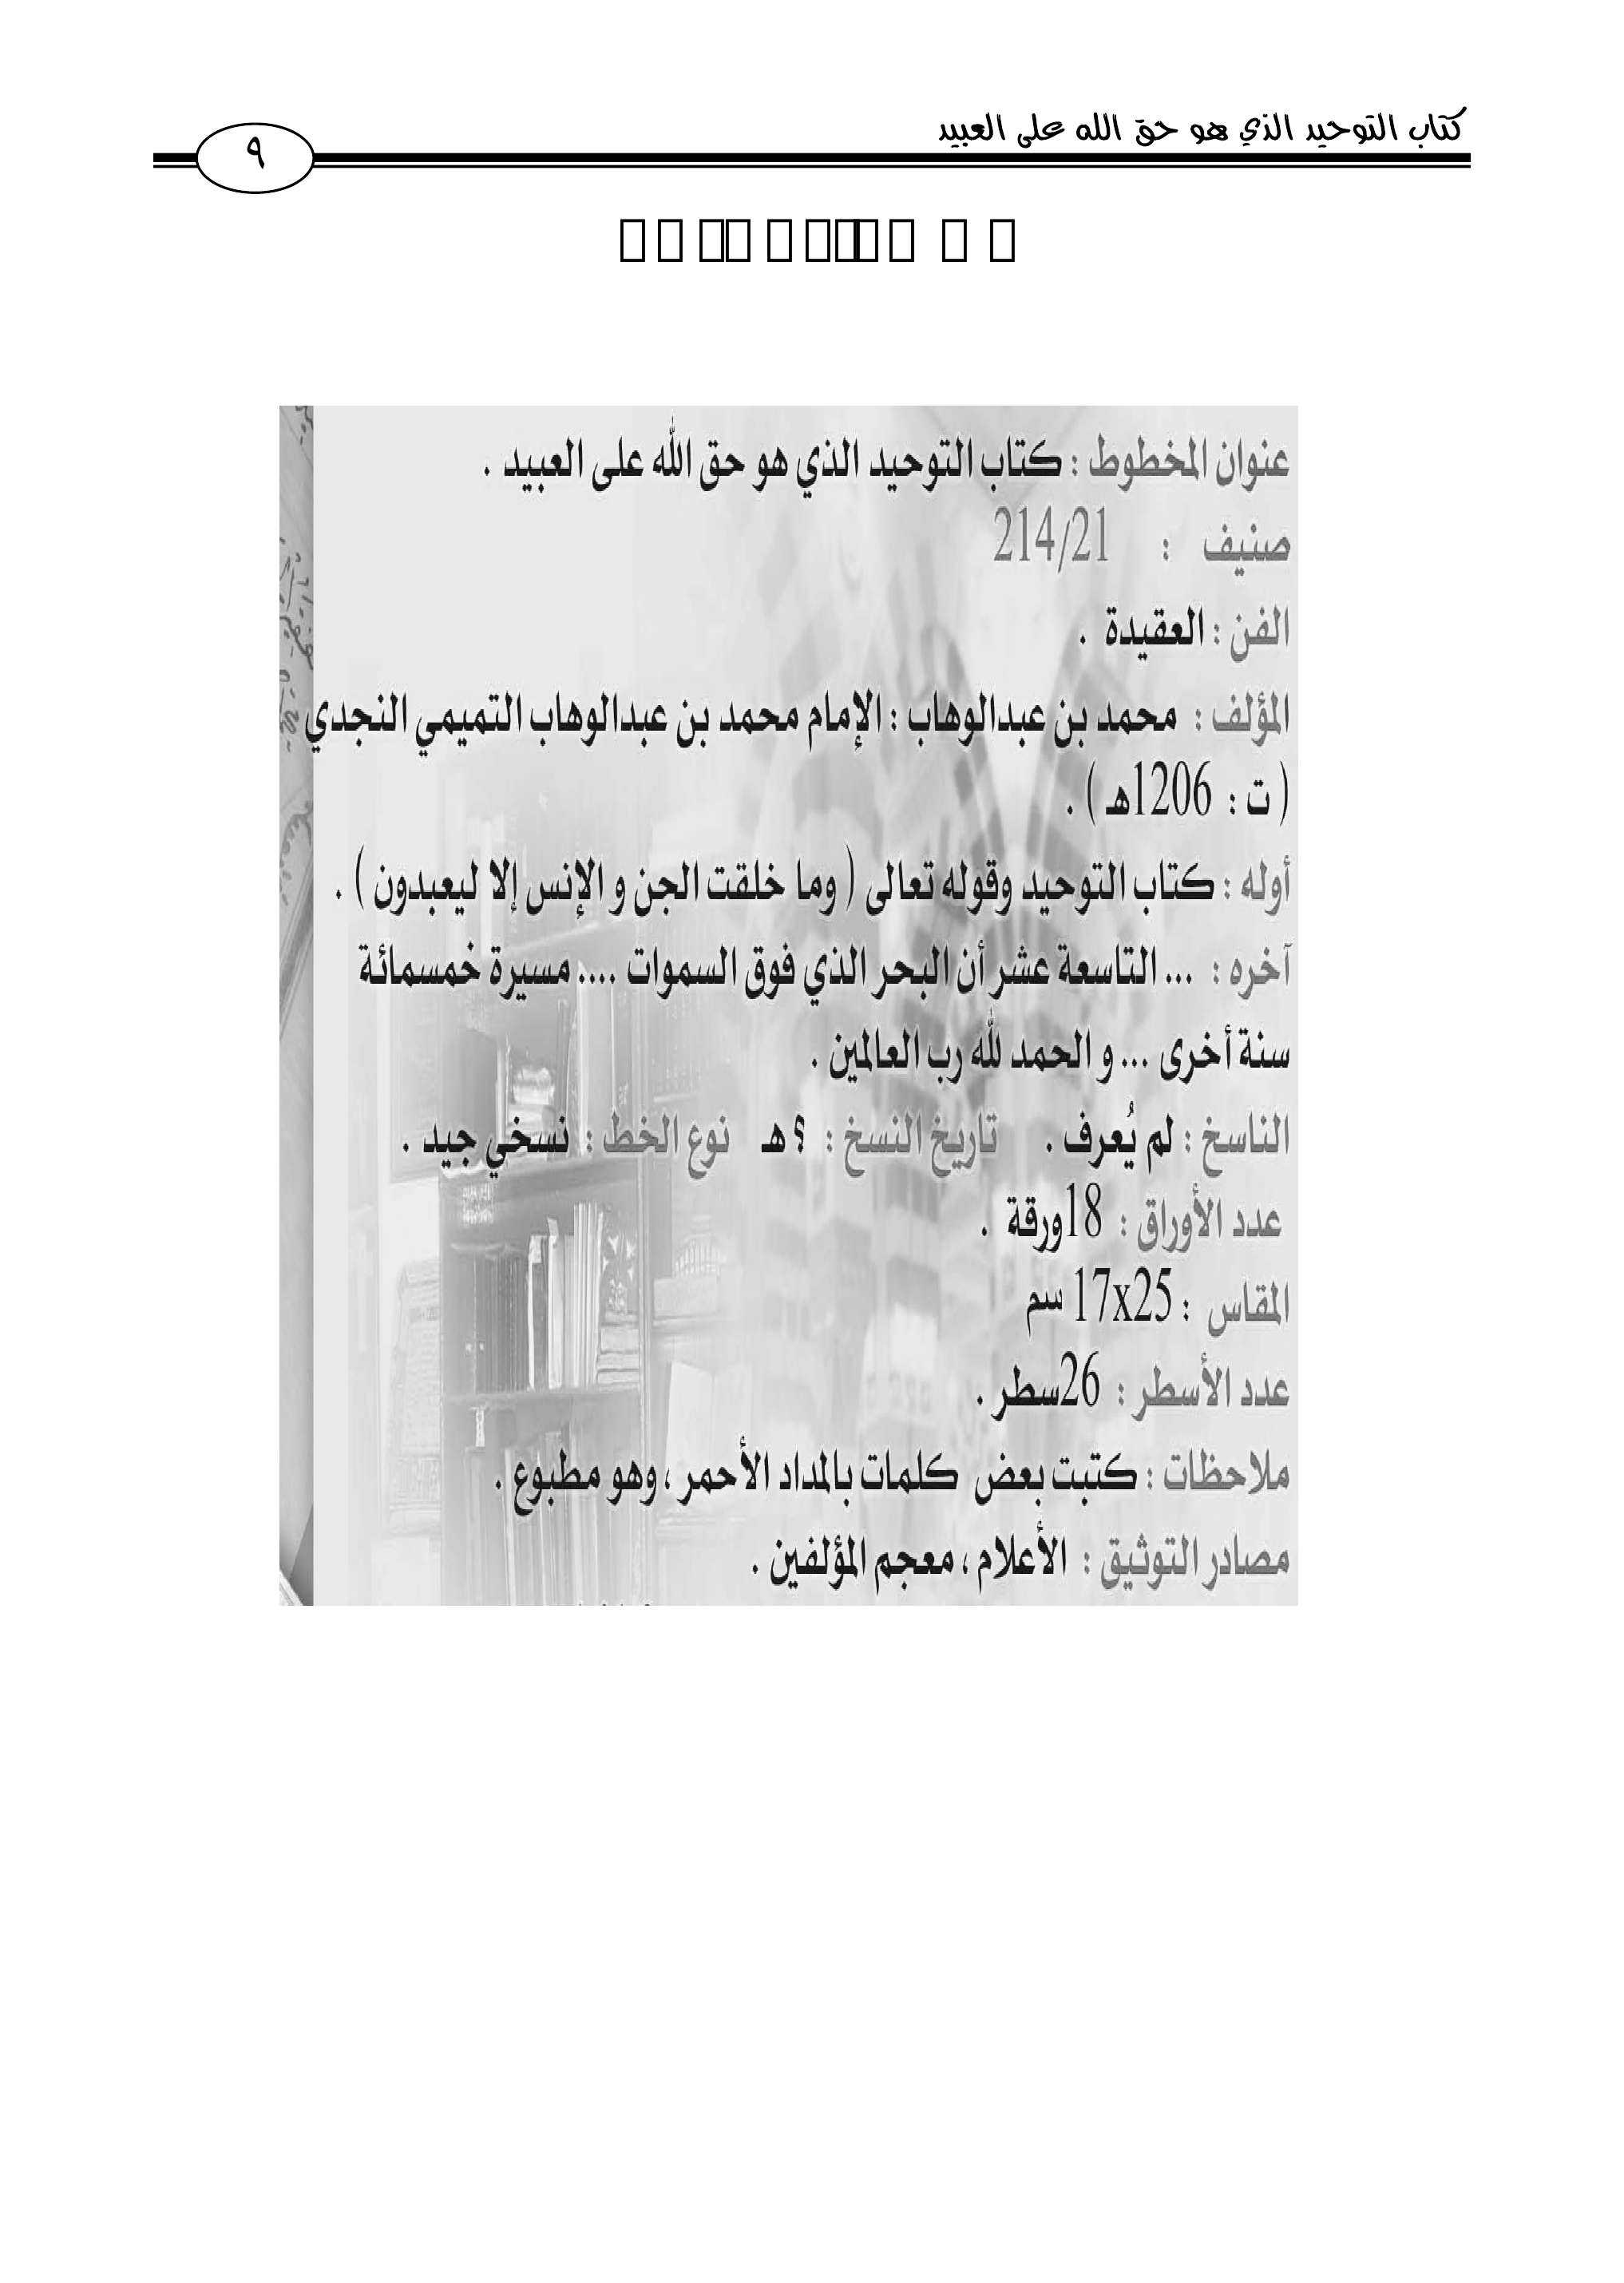 كتاب التوحيد الذي هو حق الله على العبيد
٩
عنوان المخطوط : كتاب التوحيد الذي هو حق الله على العبيد .
صنيف : 214/21
الفن : العقيدة .
المؤلف : محمد بن عبدالوهاب : الإمام محمد بن عبدالوهاب التميمي النجدي
( ت : 1206هـ ) .
أوله : كتاب التوحيد وقوله تعالى ( وما خلقت الجن و الإنس إلا ليعبدون ) .
آخره : ... التاسعة عشر أن البحر الذي فوق السموات .... مسيرة خمسمائة
سنة أخرى ... و الحمد لله رب العالمين .
الناسخ : لم يُعرف . تاريخ النسخ : ؟ هـ نوع الخط : نسخي جيد .
عدد الأوراق : 18ورقة .
المقاس : 17x25 سم
عدد الأسطر : 26سطر .
ملاحظات : كتبت بعض كلمات بالمداد الأحمر ، وهو مطبوع .
مصادر التوثيق : الأعلام ، معجم المؤلفين .